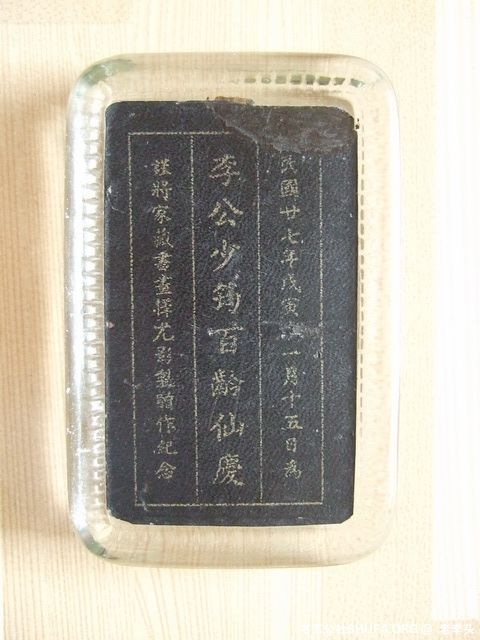 民國廿七年戊寅 一月十五日為
李公少筠百齡仙慶
謹將家藏書畫擇尤影製贈作紀念